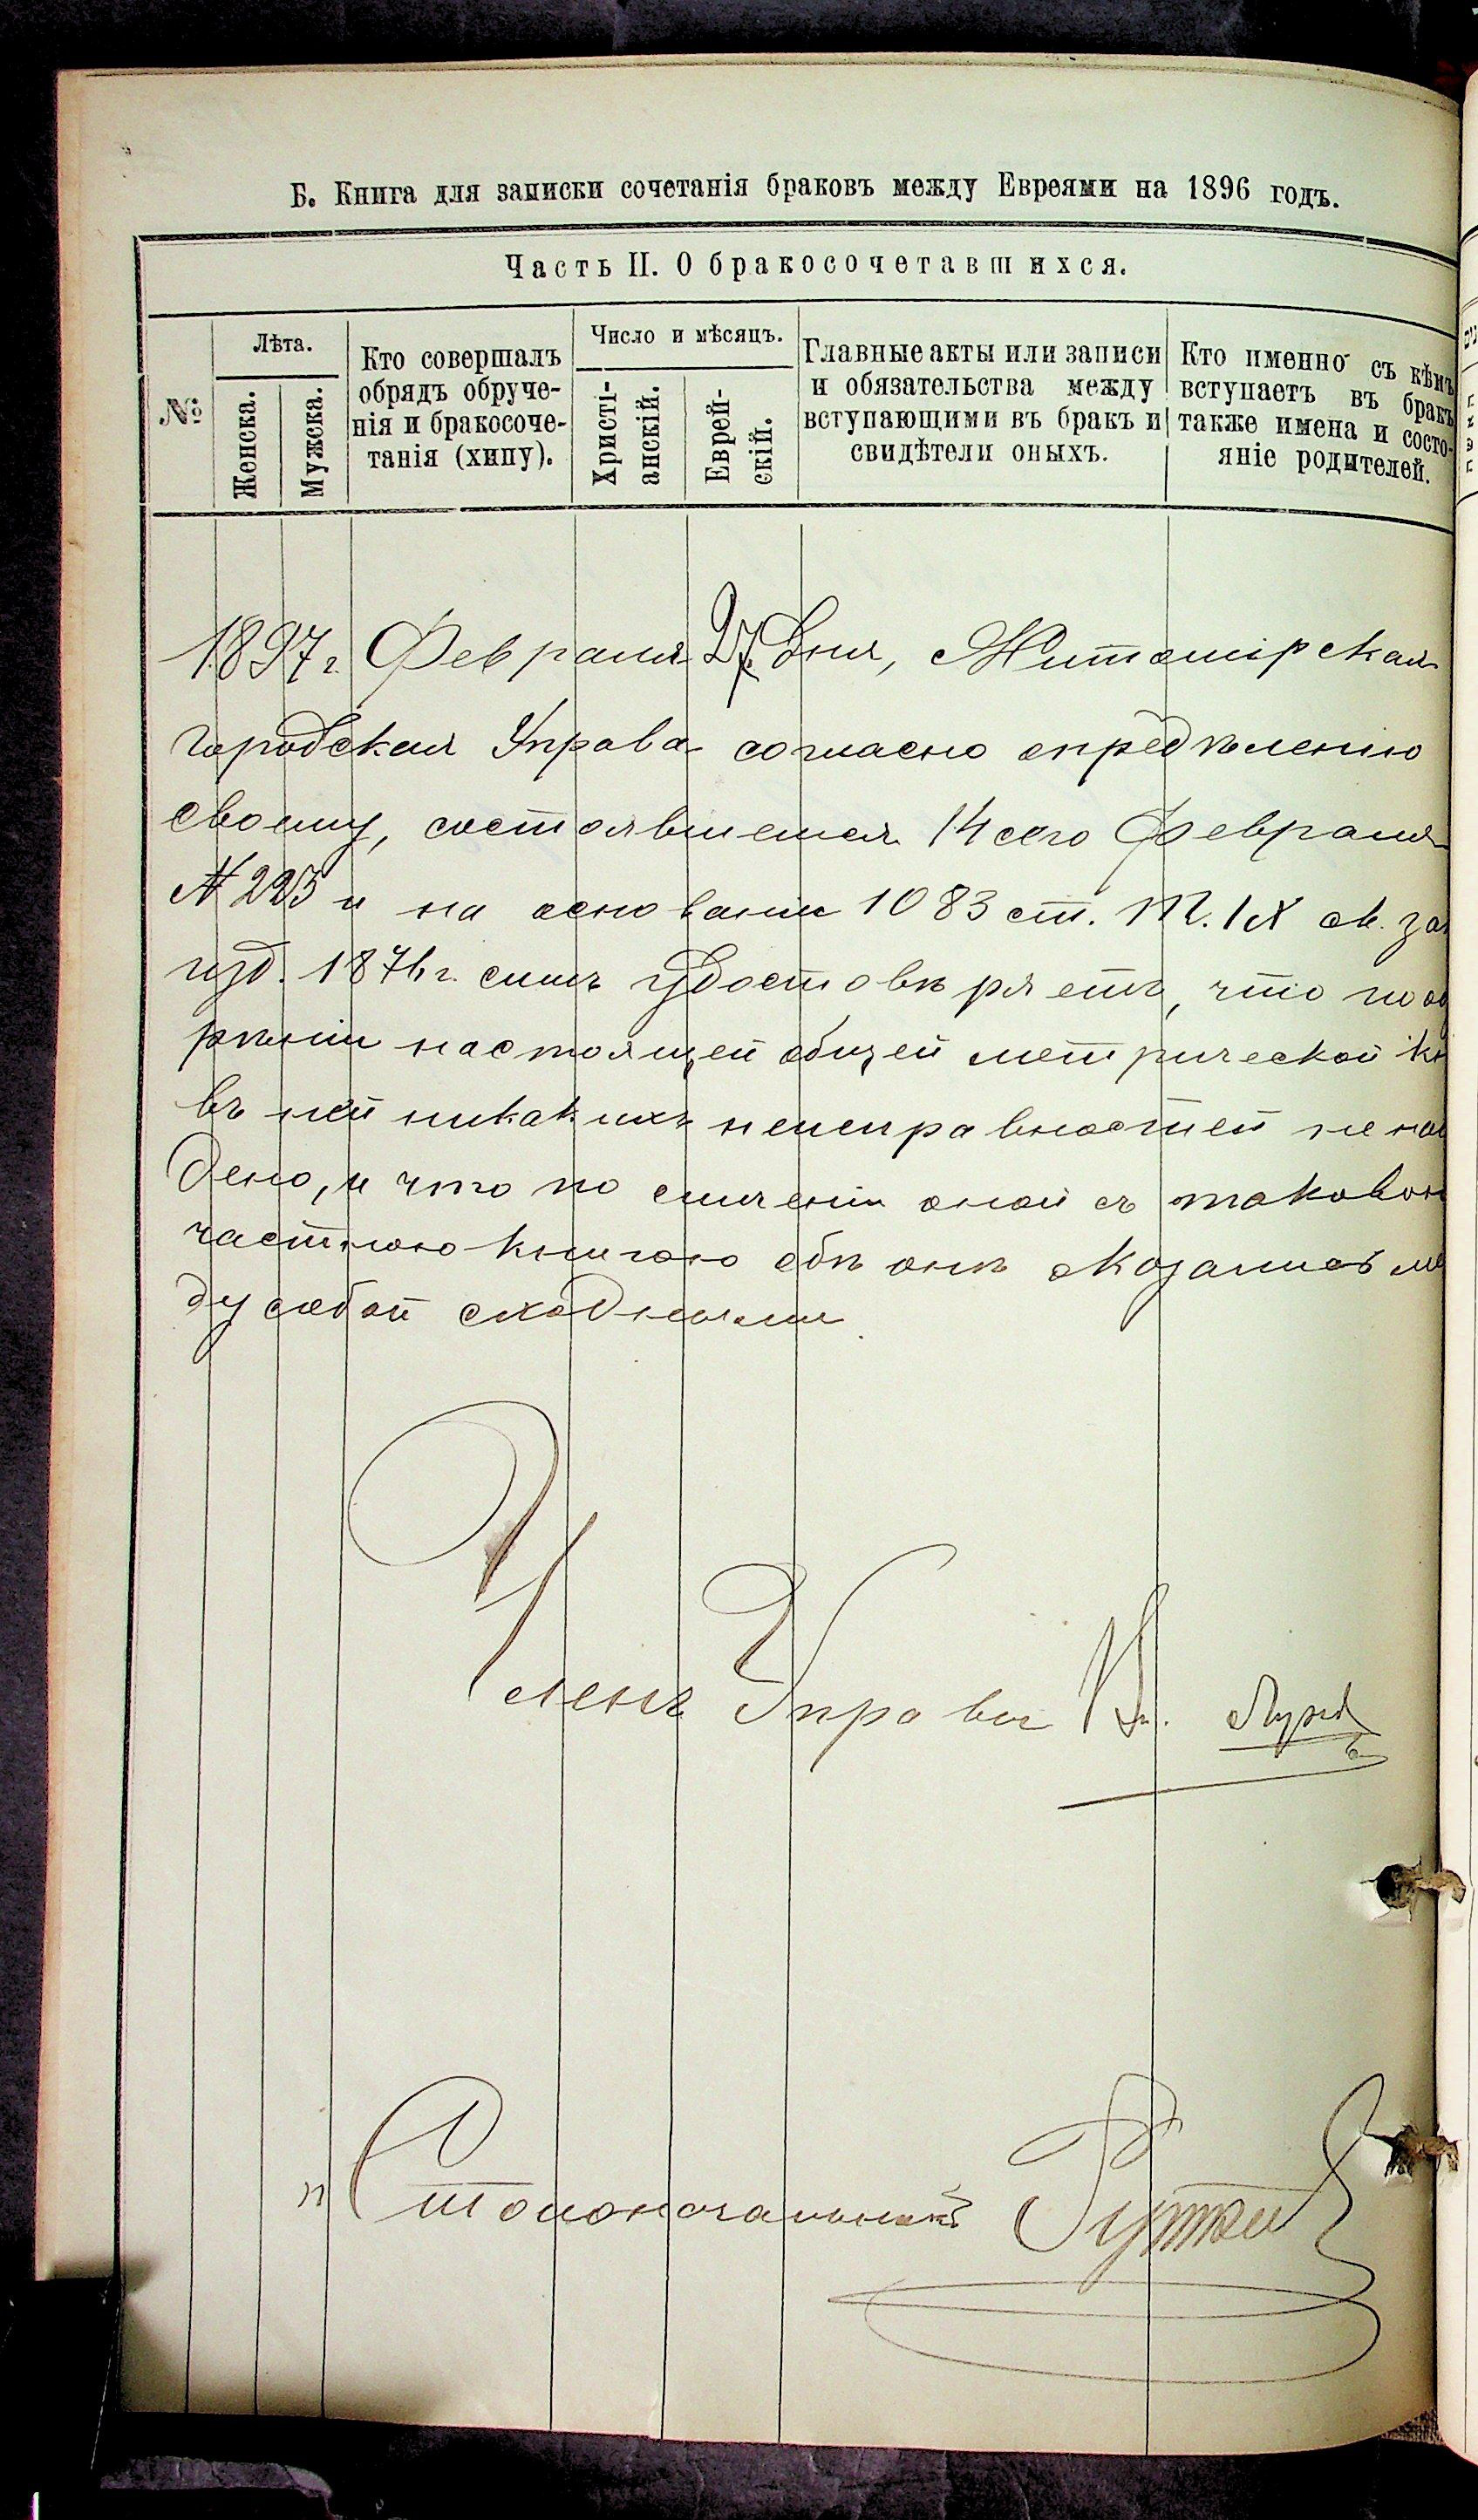 Б. Книга для записки сочетанія браковъ между Евреями на 1896 годъ.
Часть II. О бракосочетавшихся.
№
Лѣта.
Женска.
Мужска.
Кто совершалъ
обрядъ обруче-
нія и бракосоче-
танія (хипу).
Число и мѣсяцъ.
Христі-
анскій.
Еврей-
скій.
Главные акты или записи
и обязательства между
вступающими въ бракъ и
свидѣтели оныхъ.
Кто именно съ кѣмъ
вступаетъ въ бракъ
также имена и состо-
яніе родителей.
1897 г. Февраля 27 дня, Житомірская
городская Управа согласно опредѣленію
своему, состоявшемся 14 сего Февраля
№ 223 и на основаніи 1083 ст. Т. IX св. за
изд. 1876 г. симъ удостовѣряетъ, что по об
рѣніи настоящей общей метрической кн
въ ней никакихъ неисправностей не най
дено, и что по сличеніи оной съ таковой
частною книгою обѣ онѣ оказались ме
ду собой сходными.
Членъ Управы
Столоначальникъ